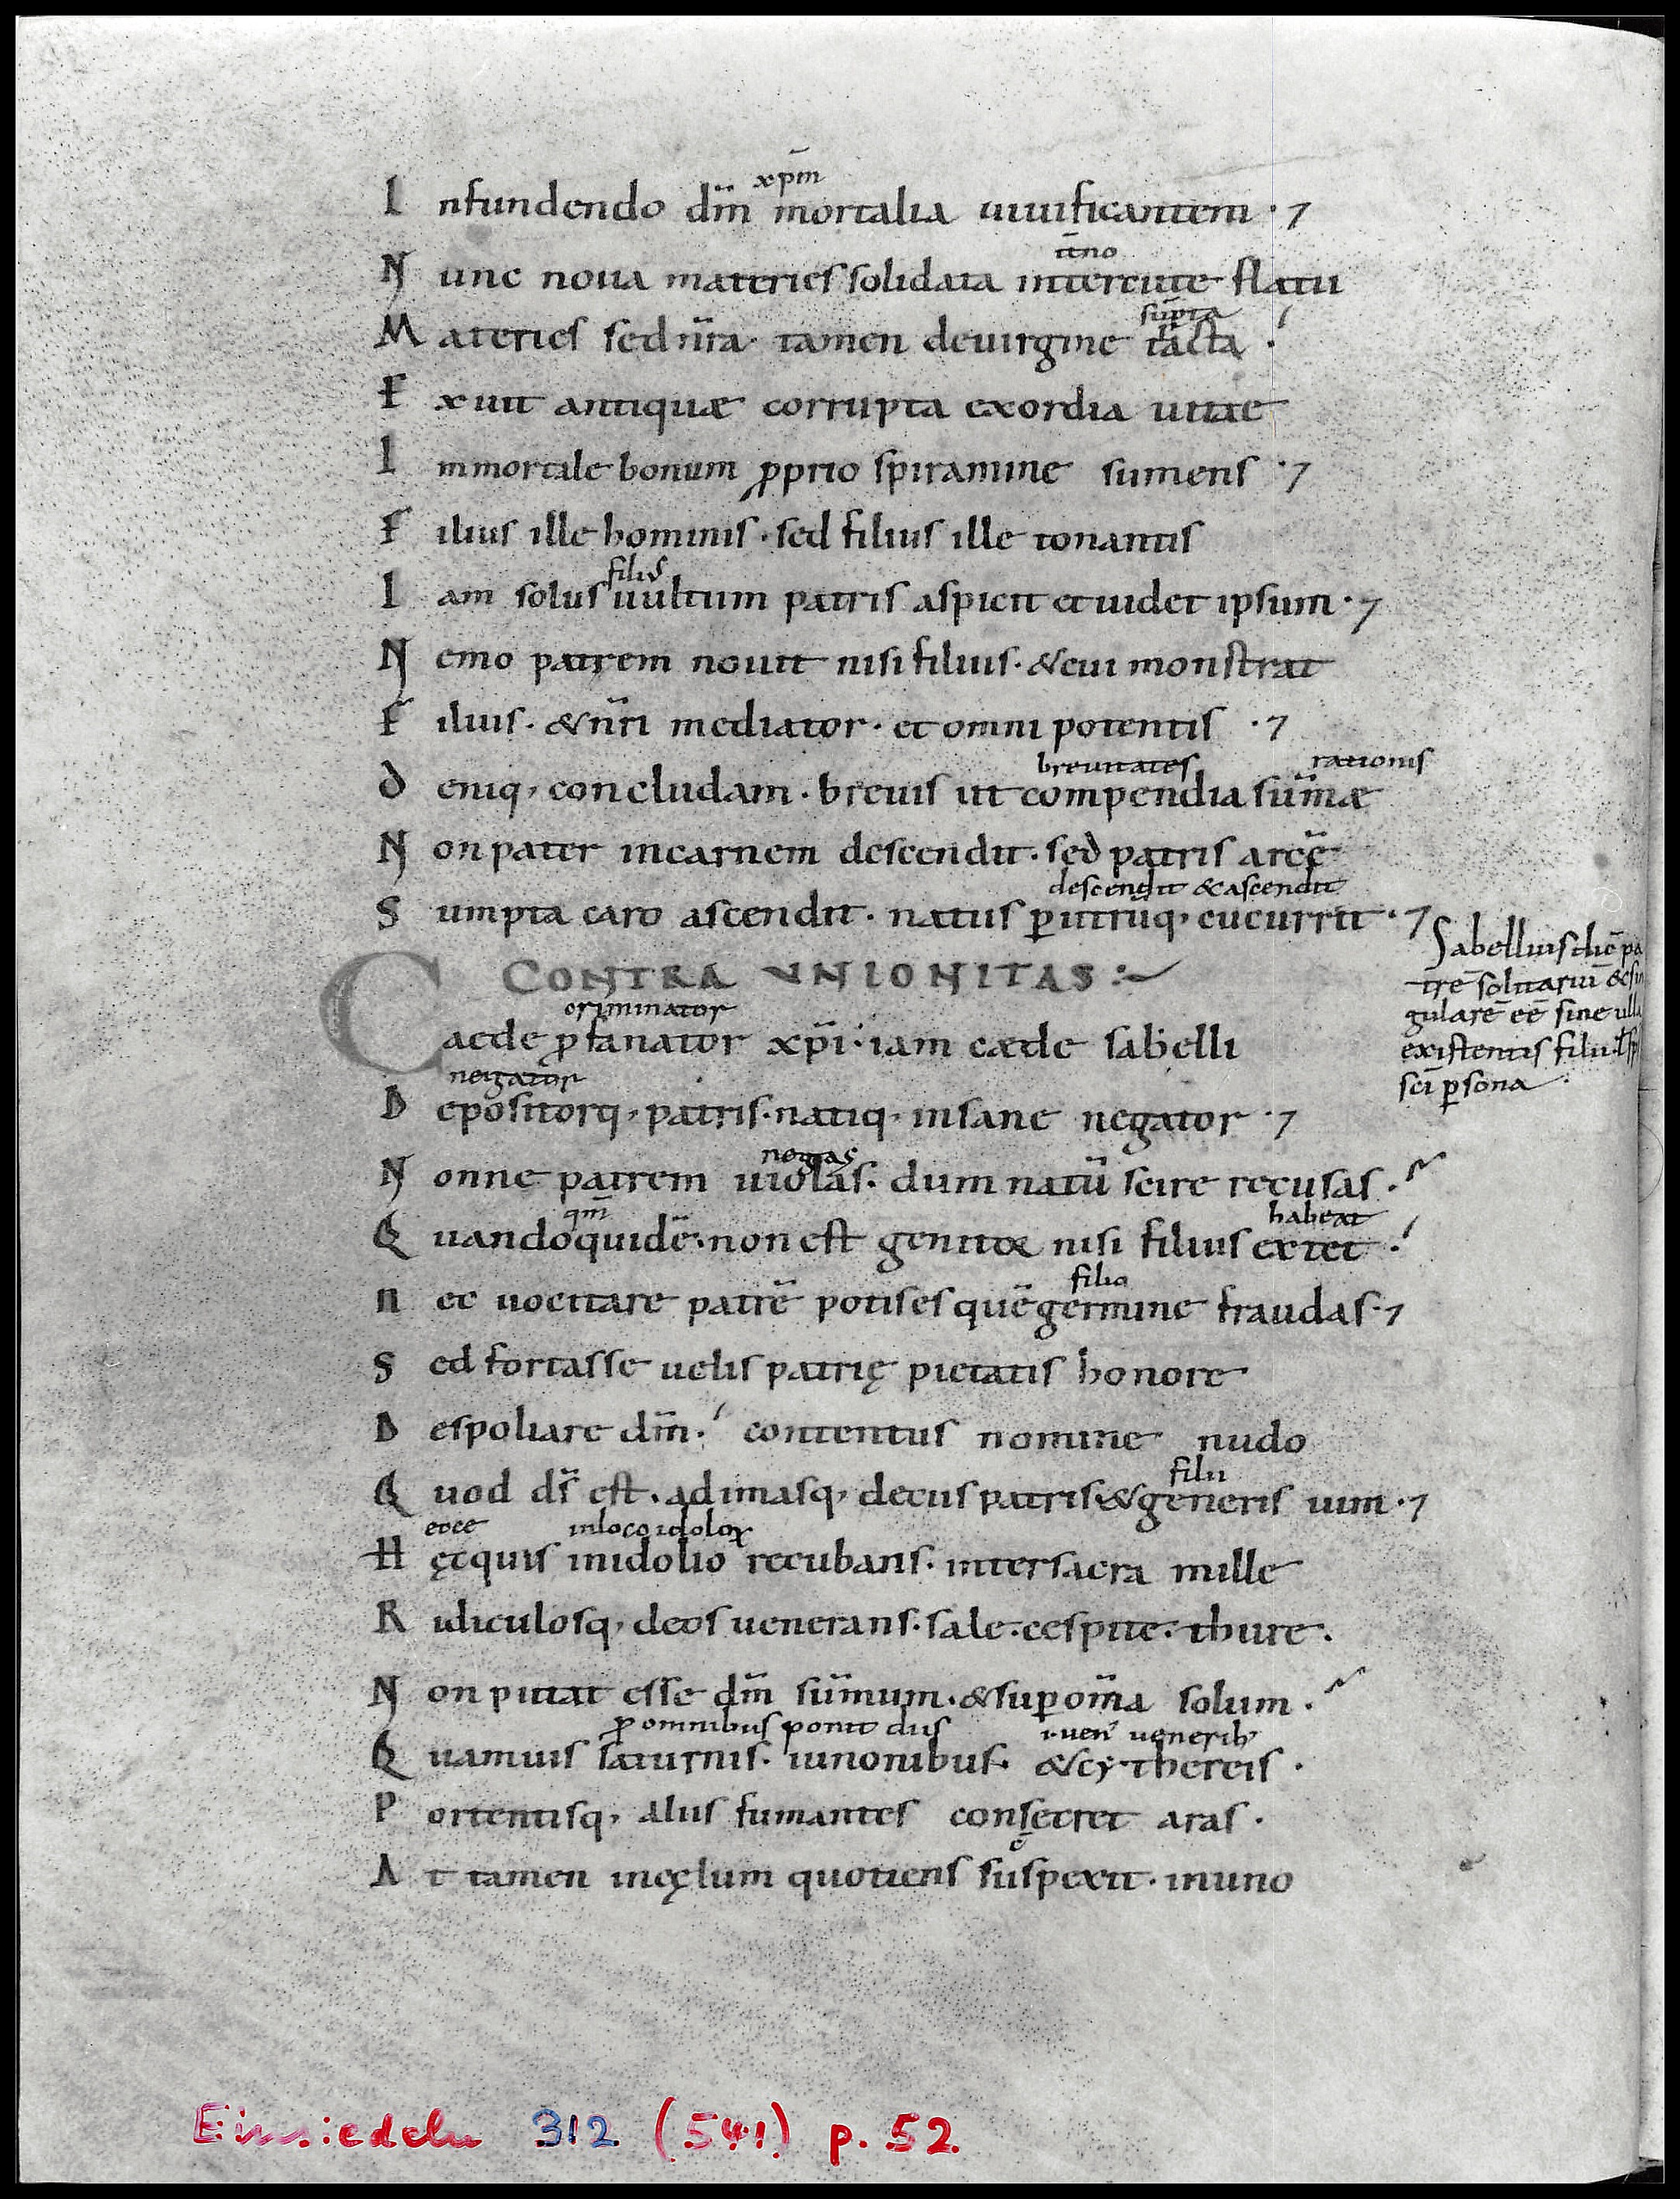 xp̄m
I nfundendo dm̄ mortalia uiuificantem ·7
t̄no
N unc noua materies solidata intercute flatu
sūpta
M ateries sed nr̄a· tamen deuirgine tācta ·
E xuit antiquæ corrupta exordia uitae
I nmortale bonum ꝓprio spiramine sumens ·7
F ilius ille hominis · sed filius ille tonantis
filiꝰ
I am solus uultum patris aspicit et uidet ipsum ·7
N emo patrem nouit nisi filius · & cui monstrat
F ilius · & nr̄i mediator · et omni potentis ·7
breuitates rationis
D eniq, concludam · breuis ut compendia sūmæ
N on pater incarnem descendit · sed patris arcē
descendit & ascendit
S umpta caro ascendit · natus ꝑ utrūq, cucurrit ·7
CONTRA VNIONITAS :~
criminator
C aede ꝓfanator xp̄i · iam cæde sabelli
negator
D epositorq, patris · natiq, insane negator ·7
negas
N onne patrem uiolas · dum natū scire recusas ·
qm̄ habeat
Q uandoquidē · non est genitor nisi filius extet ·
filio
N ec uocitare patrē potis es quē germine fraudas ·7
S ed fortasse uelis patrię pietatis honore
D espoliare dm̄ · contentus nomine nudo
filii
Q uod ds̄ est · adimasq, decus patris · & generis uim ·7
ecce inloco idoloꝝ
H ęcquis inidolio recubans · intersacra mille
R idiculosq, deos uenerans · sale · cespite · thure ·
N on putat esse dm̄ sūmum · & suꝑ om̄a solum ·
ꝓ omnibus ponit dus ueneriƀ
Q uamuis saturnis · iunonibus · & cythereis ·
P ortentisq, aliis fumantes consecret aras ·
A t tamen incęlum quotiens suspexit · inuno
Sabellius dic̄ pa
trē solitariū & sin
gularē eē sine ulla
existentis filii ł sp̄
sci ꝑsona
Einsiedeln 312 (541) p. 52